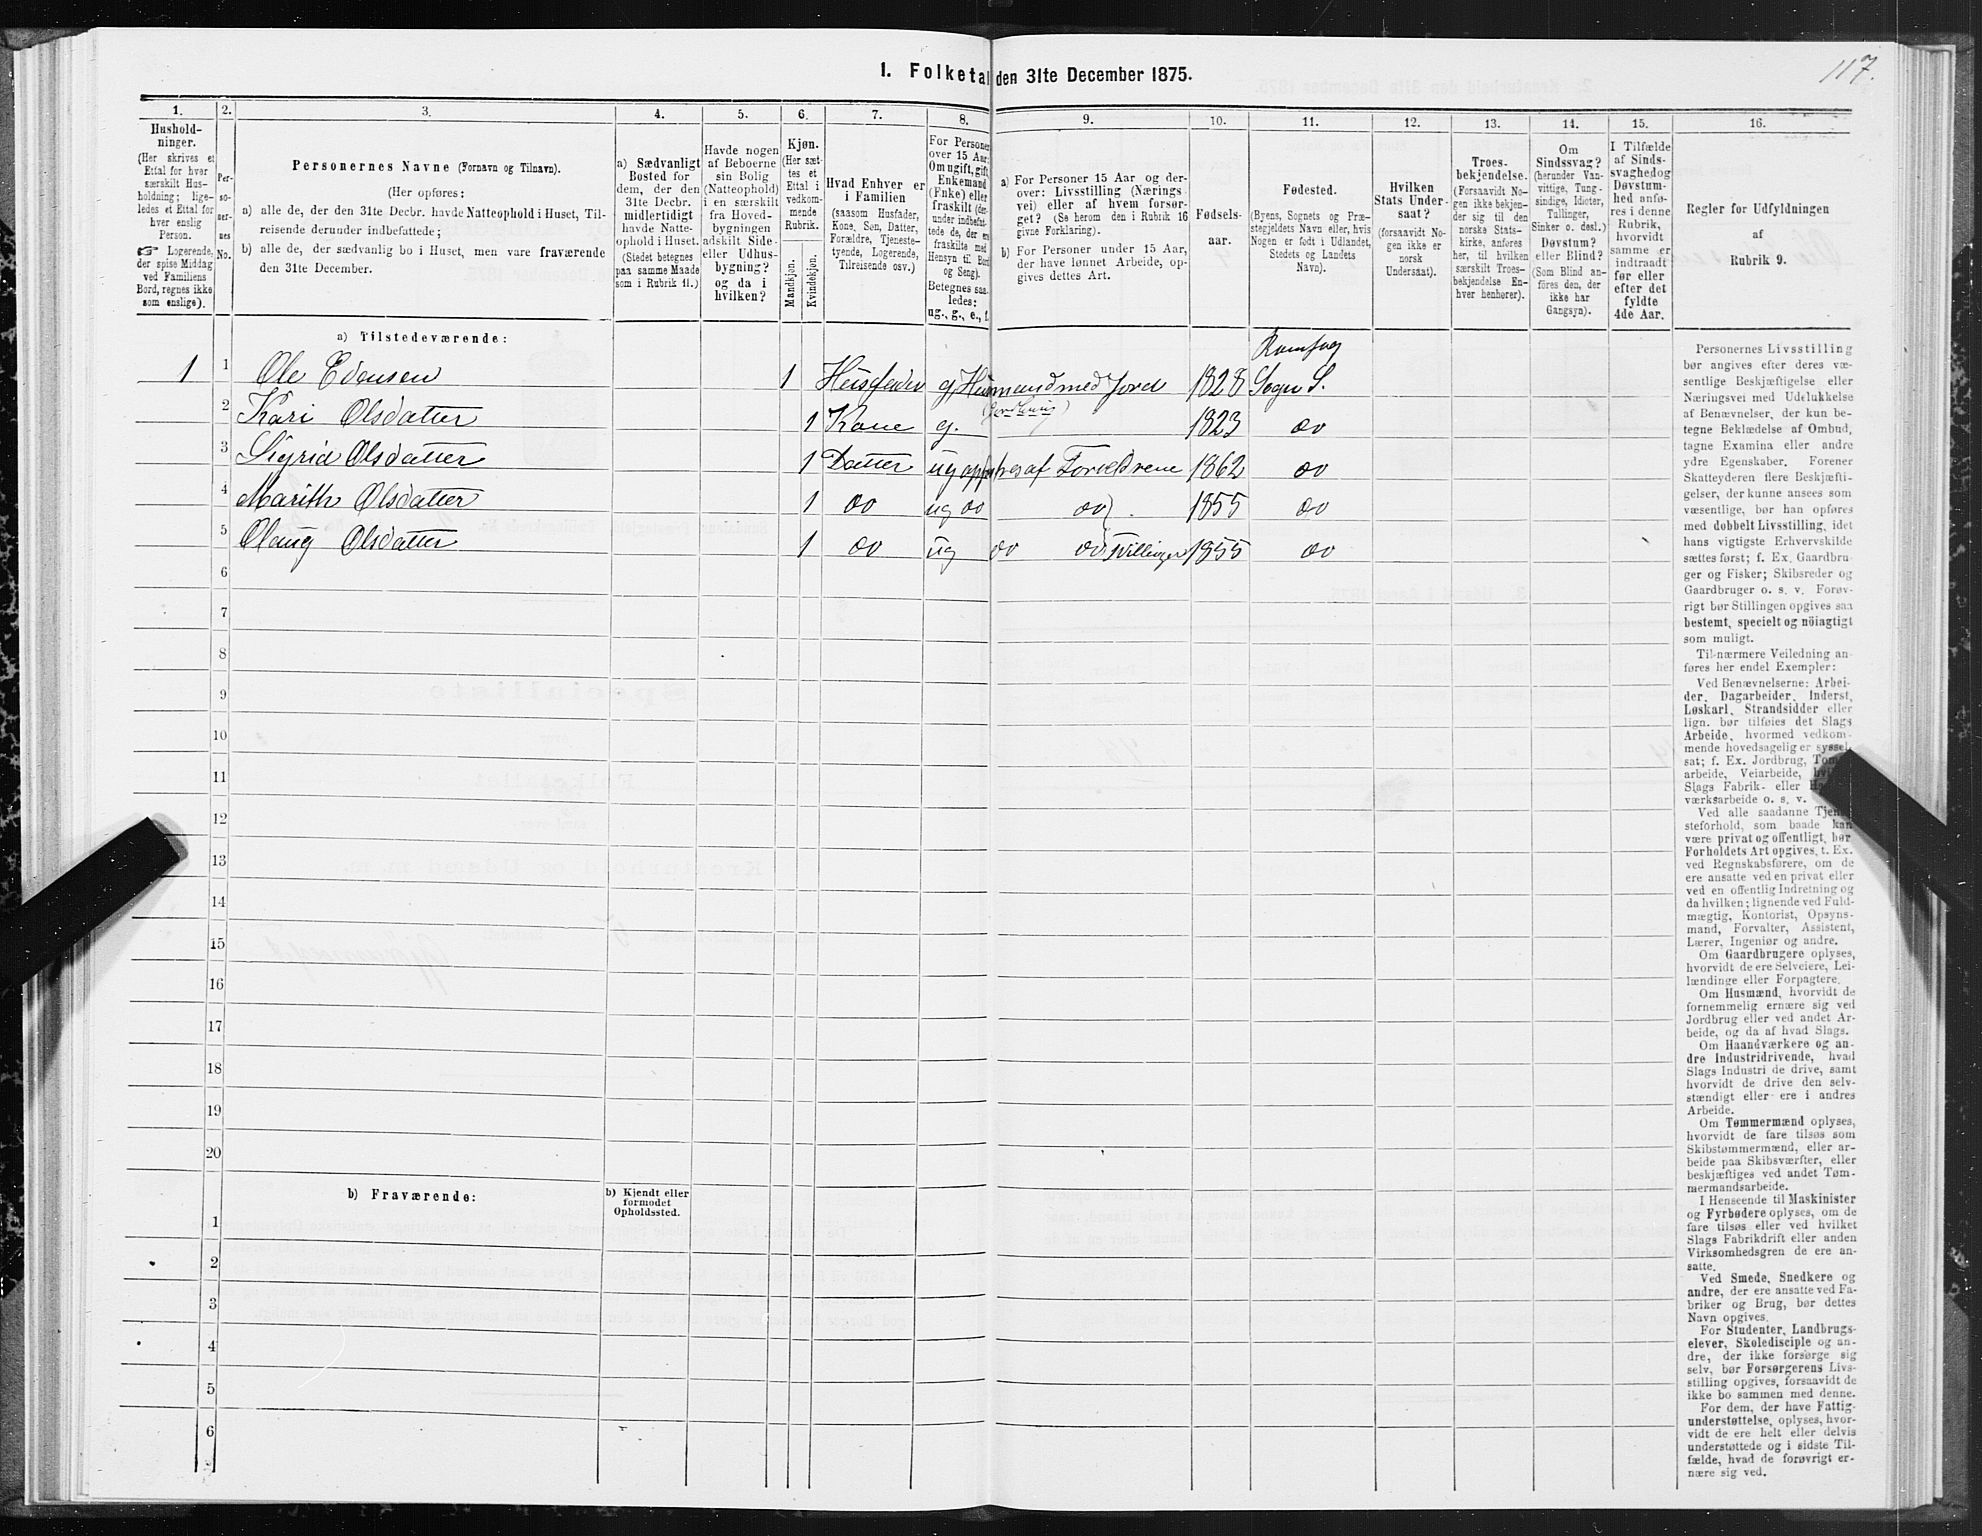 117.
1. Folketal den 31te December 1875.
1. 2. 3. 4. 5. 6. 7. 8. 9. 10. 11. 12. 13. 14. 15. 16.
Hushold-
ninger.
(Her skrives et
Ettal for hver
særskilt Hus-
holdning; lige-
ledes et Ettal for
hver enslig
Person.
☞ Logerende,
der spise Middag
ved Familiens
Bord, regnes ikke
som enslige).
Per-
so-
ner-
nes
No.
Personernes Navne (Fornavn og Tilnavn).
(Her opføres:
a) alle de, der den 31te Decbr. havde Natteophold i Huset, Til-
reisende derunder indbefattede;
b) alle de, der sædvanlig bo i Huset, men vare fraværende
den 31te December.
a) Sædvanligt
Bosted for
dem, der den
31te Decbr.
midlertidigt
havde Natte-
ophold i Huset.
(Stedet betegnes
paa samme Maade
som i Rubrik 11.)
Havde nogen
af Beboerne
sin Bolig
(Natteophold)
i en særskilt
fra Hoved-
bygningen
adskilt Side-
eller Udhus-
bygning?
og da i
hvilken?
Kjøn.
(Her sæt-
tes et
Ettal i
vedkom-
mende
Rubrik.
Mandkjøn.
Kvindekjøn.
Hvad Enhver er
i Familien
(saasom Husfader,
Kone, Søn, Datter,
Forældre, Tjeneste-
tyende, Logerende,
Tilreisende osv.)
For Personer
over 15 Aar:
Om ugift, gift,
Enkemand
(Enke) eller
fraskilt (der-
under indbefat-
tede de, der ere
fraskilte med
Hensyn til Bord
og Seng).
Betegnes saa-
ledes:
ug., g., e., f.
a) For Personer 15 Aar og der-
over: Livsstilling (Nærings-
vei) eller af hvem forsør-
get? (Se herom den i Rubrik 16
givne Forklaring).
b) For Personer under 15 Aar,
der have lønnet Arbeide, op-
gives dettes Art.
Fødsels-
aar.
Fødested.
(Byens, Sognets og Præ-
stegjeldets Navn eller, hvis
Nogen er født i Udlandet,
Stedets og Landets
Navn).
Hvilken
Stats Under-
saat?
(forsaavidt No-
gen ikke er
norsk
Undersaat).
Troes-
bekjendelse.
(Forsaavidt No-
gen ikke bekjen-
der sig til den
norske Stats-
kirke, anføres
her, til hvilken
særskilt Troes-
bekjendelse En-
hver henhører).
Om
Sindssvag?
(herunder Van-
vittige, Tung-
sindige, Idioter,
Tullinger,
Sinker o. desl.)
Døvstum?
eller Blind?
(Som Blind an-
føres den, der
ikke har
Gangsyn).
I Tilfælde
af Sinds-
svaghed og
Døvstum-
hed anfø-
res i denne
Rubrik,
hvorvidt
samme er
indtraadt
før eller
efter det
fyldte
4de Aar.
Regler for Udfyldningen
af
Rubrik 9.
a) Tilstedeværende:
1 1 Ole Edensen 1 Husfader g Husmand med Jord 1828 Sogn S.
2 Kari Olsdatter 1 Kone g. 1823 do
3 Sigrid Olsdatter 1 Datter ug af Forældrene 1862 do
4 Marith Olsdatter 1 do ug do do 1855 do
5 Olaug Olsdatter 1 do ug do do Tvillinger 1855 do
6
7
8
9
10
11
12
13
14
15
16
17
18
19
20
b) Fraværende:
b) Kjendt eller
formodet
Opholdssted.
1
2
3
4
5
6
Personernes Livsstilling
bør angives efter deres væ-
sentlige Beskjæftigelse eller
Næringsvei med Udelukkelse
af Benævnelser, der kun be-
tegne Beklædelse af Ombud,
tagne Examina eller andre
ydre Egenskaber. Forener
Skatteyderen flere Beskjæfti-
gelser, der kunne ansees som
væsentlige, bør han opføres
med dobbelt Livsstilling, idet
hans vigtigste Erhvervskilde
sættes først; f. Ex. Gaardbru-
ger og Fisker; Skibsreder og
Gaardbruger o. s. v. Forøv-
rigt bør Stillingen opgives saa
bestemt, specielt og nöiagtigt
som muligt.
Til nærmere Veiledning an-
føres her endel Exempler:
Ved Benævnelserne: Arbei-
der, Dagarbeider, Inderst,
Løskarl, Strandsidder eller
lign. bør tilføies det Slags
Arbeide, hvormed vedkom-
mende hovedsagelig er syssel-
sat; f. Ex. Jordbrug, Tom-
arbeide, Veiarbeide,
Slags Fabrik- eller
værksarbeide o. s. v.
Ved alle saadanne Tjene-
steforhold, som baade kan
være privat og offentligt, bør
Forholdets Art opgives, t. Ex.
ved Regnskabsførere, om de
ere ansatte ved en privat eller
ved en offentlig Indretning og
da hvilken; lignende ved Fuld-
mægtig, Kontorist, Opsyns-
mand, Forvalter, Assistent,
Lærer, Ingeniør og andre.
Om Gaardbrugere oplyses,
hvorvidt de ere Selveiere, Lei-
lændinge eller Forpagtere.
Om Husmænd, hvorvidt de
fornemmelig ernære sig ved
Jordbrug eller ved andet Ar-
beide, og da af hvad Slags.
Om Haandværkere og an-
dre Industridrivende, hvad
Slags Industri de drive, samt
hvorvidt de drive den selv-
stændigt eller ere i andres
Arbeide.
Om Tømmermænd oplyses,
hvorvidt de fare tilsøs som
Skibstømmermænd, eller ar-
beide paa Skibsværfter, eller
beskjæftiges ved andet Tøm-
mermandsarbeide.
I Henseende til Maskinister
og Fyrbødere oplyses, om de
fare tilsøs eller ved hvilket
Slags Fabrikdrift eller anden
Virksomhedsgren de ere an-
satte.
Ved Smede, Snedkere og
andre, der ere ansatte ved Fa-
briker og Brug, bør dettes
Navn opgives.
For Studenter, Landbrugs-
elever, Skoledisciple og an-
dre, der ikke forsørge sig
selv, bør Forsørgerens Livs-
stilling opgives, forsaavidt de
ikke bo sammen med denne.
For dem, der have Fattig-
understøttelse, oplyses, hvor-
vidt de ere helt eller delvis
understøttede og i sidste Til-
fælde, hvad de forøvrigt er-
nære sig ved.